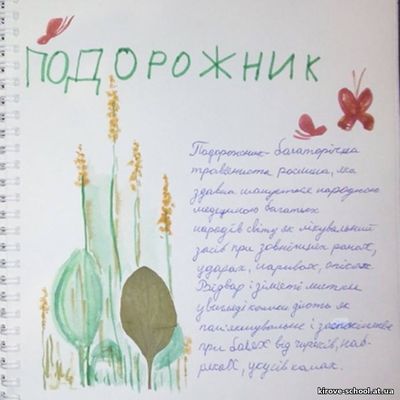 ПОДОРОЖНИК
Подорожник - багаторічна
трав'яниста рослина, яка
здавна шанується народною
медициною багатьох
народів світу як лікувальний
засіб при зовнішніх ранах,
ударах, наривах, опіках.
Відвар і зім'яті листки
у вигляді кашки діють як
пом'якшувальне і
при болях від чиряків, нав-
укусів комах.
kirove-school.at.ua